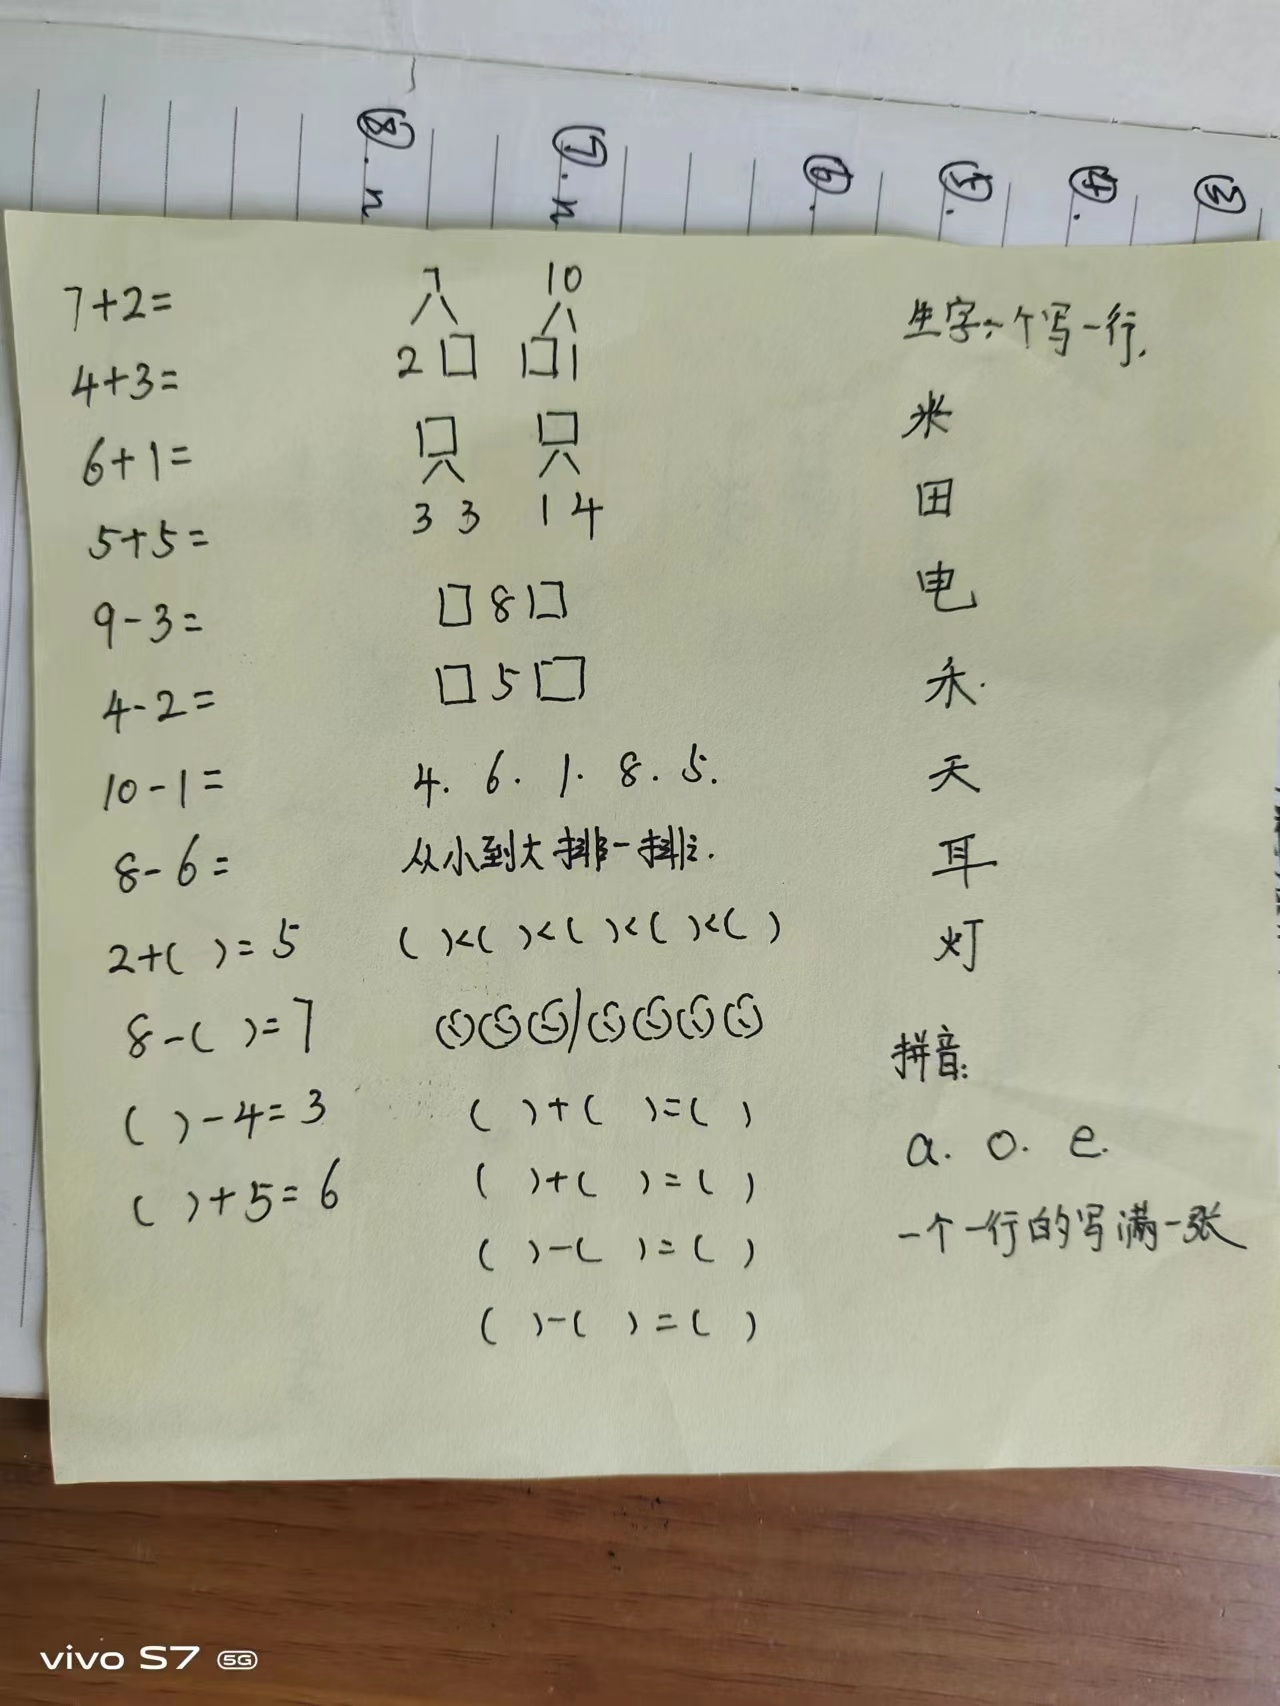 ⑧. n
⑦. n
⑥.
⑤.
④.
③
7+2=
4+3=
6+1=
5+5=
9-3=
4-2=
10-1=
8-6=
2+( )=5
8-( )=7
( )-4=3
( )+5=6
7
2 □
10
□ 1
□
3 3
□
1 4
□ 8 □
□ 5 □
4. 6. 1. 8. 5.
从小到大排一排.
( )<( )<( )<( )<( )
( )+( )=( )
( )+( )=( )
( )-( )=( )
( )-( )=( )
生字一个写一行.
米
田
电
禾.
天
耳
灯
拼音:
a. o. e.
一个一行的写满一张
vivo S7 5G